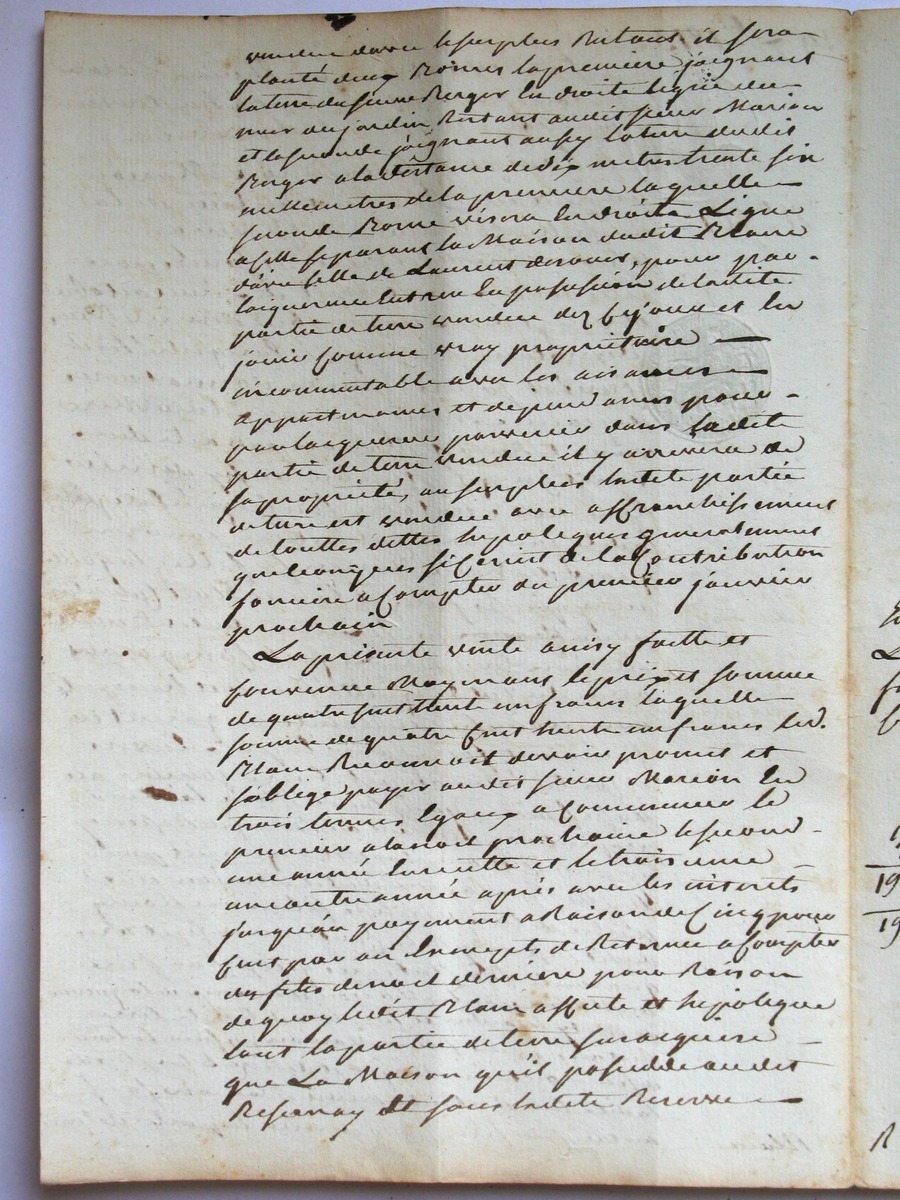 vendue davec le surplus Restant il sera
planté deux Bornes la première joignant
la terre du sieur Berger En droite ligne du
mur du jardin Restant audit sieur Marion
et la seconde joignant aussy la terre dudit
Berger a la distance de dix metres trente six
millemetres de la première laquelle
seconde Borne visera En droite Ligne
a celle separant la Maison dudit Blanc
d'avec celle de Laurent pour par
l'aiquereur Entrer En possession de ladite
partie de terre vendue dez cejour et En
jouir Comme vray propriétaire
incommutable avec les aisances
appartenances et dependances pour
par laiquereur parvenir dans ladite
partie de terre vendue il y arrivera de
sa propriété, au surplus ladite partie
de terre est vendue avec affranchissement
de touttes dettes hipoteques generalement
quelconques si Cenest de la Contribution
fonciere a Compter du premier janvier
prochain
La presente vente ainsy faitte et
convenue Moyenans le prix et somme
de quatre cent trente un francs laquelle
somme de quatre Cent trente un francs led.
Blanc Reconnoit devoir promet et
soblige payer audit sieur Marion En
trois termes Egaux a Commencer le
premier a la noel prochaine le second
une année Ensuitte et le troisieme
une autre année après avec les interets
jusqu'au payement a Raison de Cinq pour
Cent par an Exempts de Retenue a Compter
des fetes de noel derniere pour Raison
de quoy ledit Blanc affecte et hipoteque
tant la partie de terre sus acquise
que La Maison qu'il possedde audit
et sous ladite Reserve
19
19
R